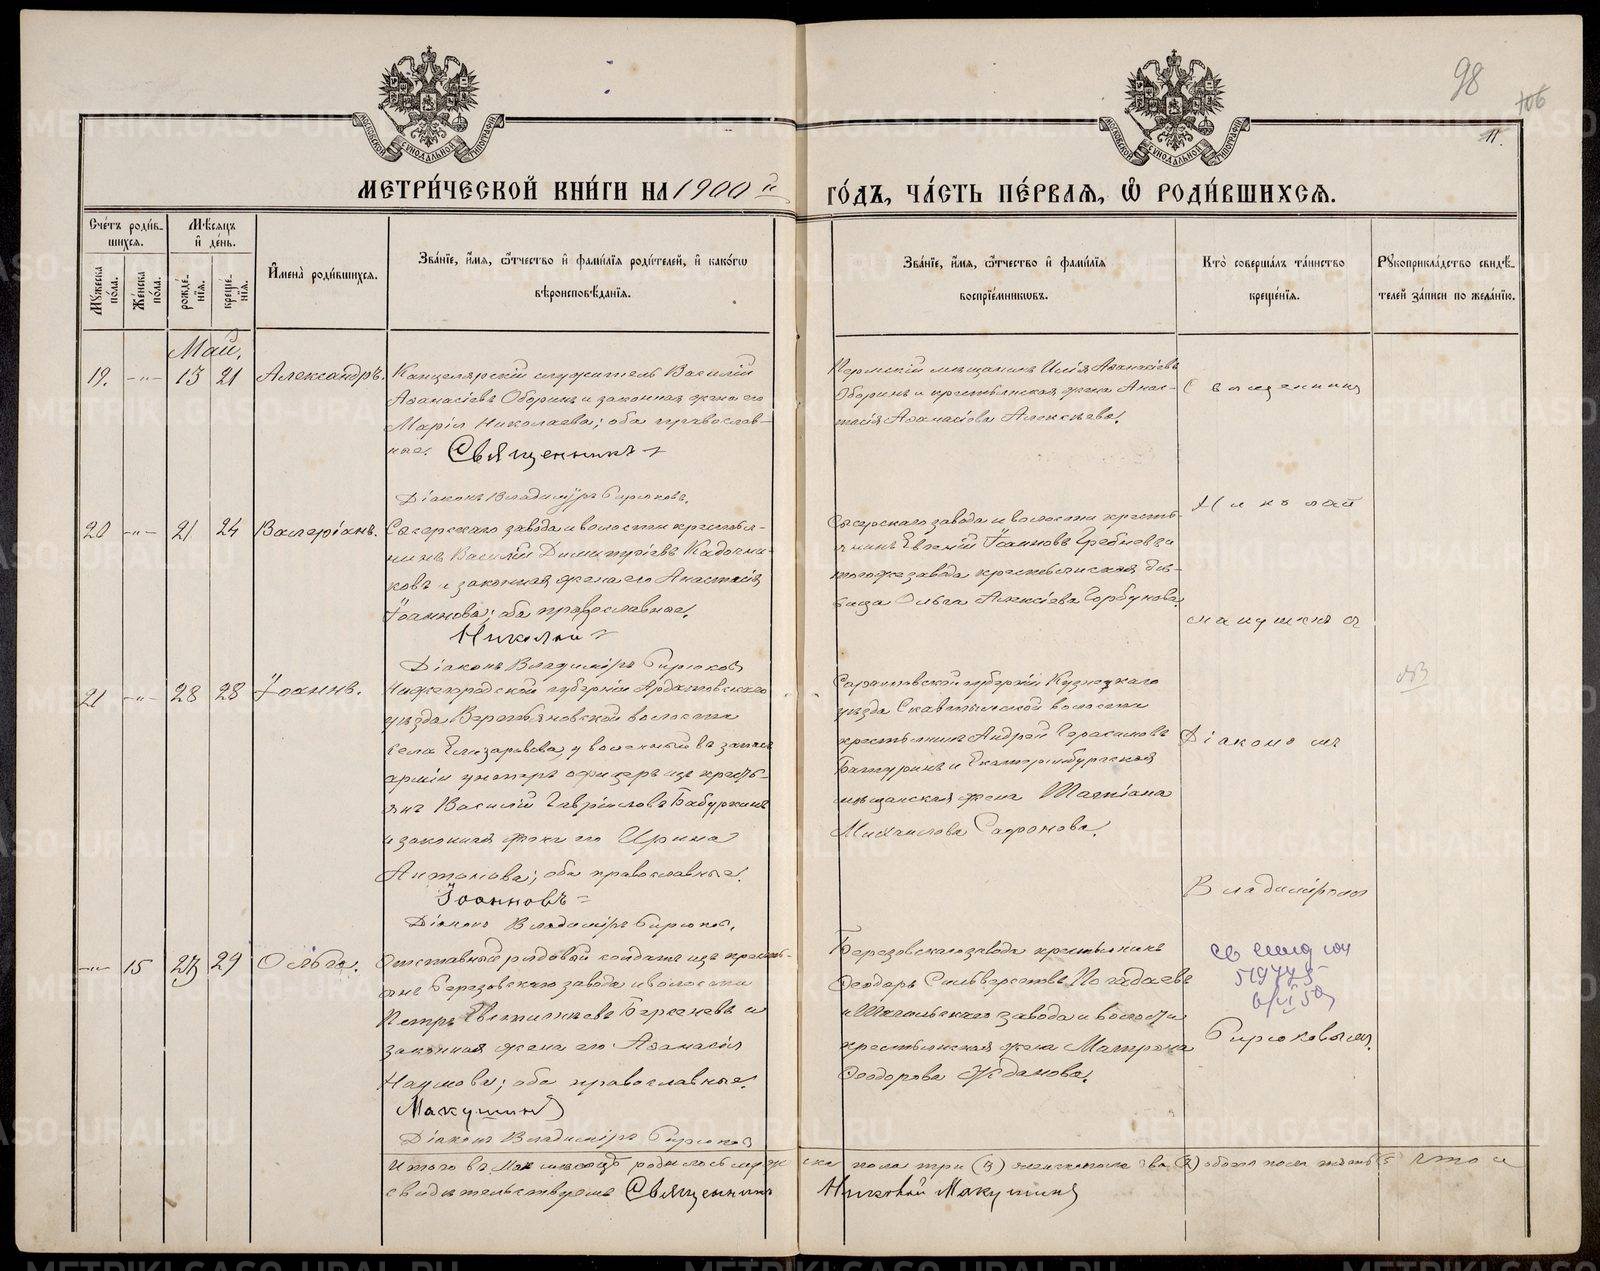 98
106
11.
МОСКОВСКОЙ СѴНОДАЛЬНОЙ ТИПОГРАФІИ
МОСКОВСКОЙ СѴНОДАЛЬНОЙ ТИПОГРАФІИ
МЕТРИ́ЧЕСКОЙ КНИ́ГИ НА 1900 й
ГО́ДЪ, ЧА́СТЬ ПЕ́РВАЯ, Ѡ҆ РОДИ́ВШИХСЯ.
Сче́тъ роди́в-
шихся.
Мѣ́сяцъ
и҆ де́нь.
Мꙋ́жеска по́ла.
Же́нска по́ла.
рожде́-
нїѧ.
креще́-
нїѧ.
И҆мена̀ роди́вшихсѧ.
Зва́нїе, и҆́мѧ, ѻ҆́тчество и҆ фами́лїѧ роди́телей, и҆ како́гѡ
вѣроисповѣ́данїѧ.
Зва́нїе, и҆́мѧ, ѻ҆́тчество и҆ фами́лїѧ
воспрїе́мниковъ.
Кто̀ соверша́лъ та́инство
креще́нїѧ.
Рꙋкоприкла́дство свидѣ́-
телей за́писи по жела́нїю.
Май.
19. -"- 13 21 Александръ.
Канцелярскій служитель Василій
Аѳанасіевъ Оборинъ и законная жена его
Марія Николаева; оба православ-
ные. Священникъ
Діаконъ Владиміръ Бирюковъ.
Пермскій мѣщанинъ Илія Аѳанасіевъ
Оборинъ и крестьянская жена Анас-
тасія Аѳанасіева Алексѣева.
Священникъ
20 -"- 21 24 Валеріанъ.
Сысерскаго завода и волости крестья-
нинъ Василій Димитріевъ Кадочни-
ковъ и законная жена его Анастасія
Іоаннова; оба православные.
Николай
Діаконъ Владиміръ Бирюковъ
Сысерскаго завода и волости кресть-
янинъ Евгеній Іоанновъ Гребневъ и
тогоже завода крестьянская дѣ-
вица Ольга Алексіева Горбунова.
Николай
Макушинъ съ
21 -"- 28 28 Іоаннъ.
Нижегородской губерніи Ардатовскаго
уѣзда Вертьяновской волости
села Елизарьева, уволенный въ запасъ
арміи унтеръ офицеръ изъ кресть-
янъ Василій Гавріиловъ Бабуркинъ
и законная жена его Ирина
Антонова; оба православные.
Іоанновъ
Діаконъ Владиміръ Бирюковъ.
Саратовской губерніи Кузнецкаго
уѣзда
крестьянинъ Андрей Герасимовъ
Батуринъ и Екатеринбургская
мѣщанская жена Татіана
Михаилова Сафронова.
Діакономъ
Владиміромъ
-"- 15 23 29 Ольга.
Отставный рядовой солдатъ изъ кресть-
янъ Березовскаго завода и волости
Петръ Евстигнѣевъ Берсеневъ и
законная жена его Аѳанасія
Наумова; оба православные.
Макушинъ
Діаконъ Владиміръ Бирюковъ
Березовскаго завода крестьянинъ
Ѳеодоръ Сильверстовъ Погадаевъ
и Шайтанскаго завода и волости
крестьянская жена Матрона
Ѳеодорова Жданова.
Бирюковымъ.
Итого въ Маѣ мѣсяцѣ родилось мужска пола три (3) женска пола два (2) обоего пола пять (5) что и
свидѣтельствуемъ Священникъ Николай Макушинъ
METRIKI.GASO-URAL.RU